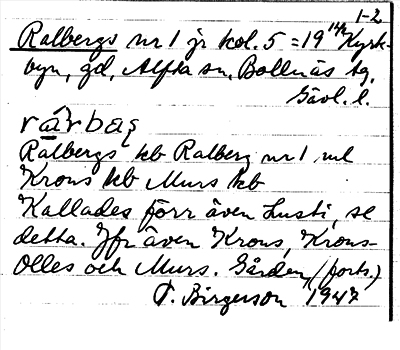 1-2
Ralbergs nr 1 jr kol. 5 = 19 14/12 Kyrk-
byn, gd, Alfta sn, Bollnäs tg,
Gävl. l.
Ralbergs kb Ralberg nr 1 ml
Krons kb Murs kb
Kallades förr även Lusti, se
detta. Jfr även Krons, Krons-
Olles och Murs. Gården (forts.)
T. Birgerson 1947